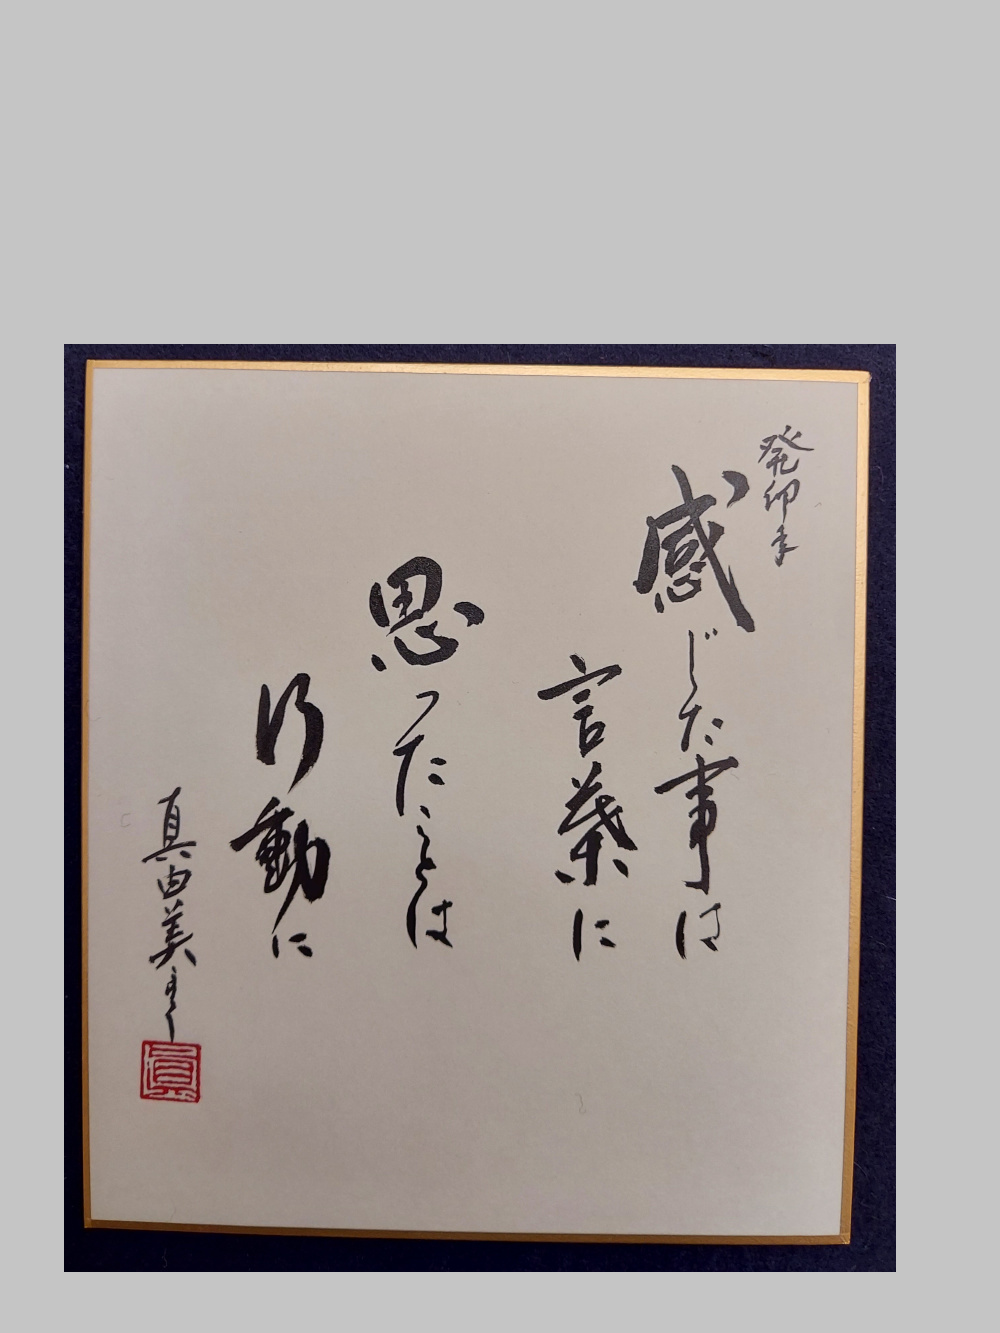 癸卯年
感じた事は
言葉に
思ったことは
行動に
真由美書